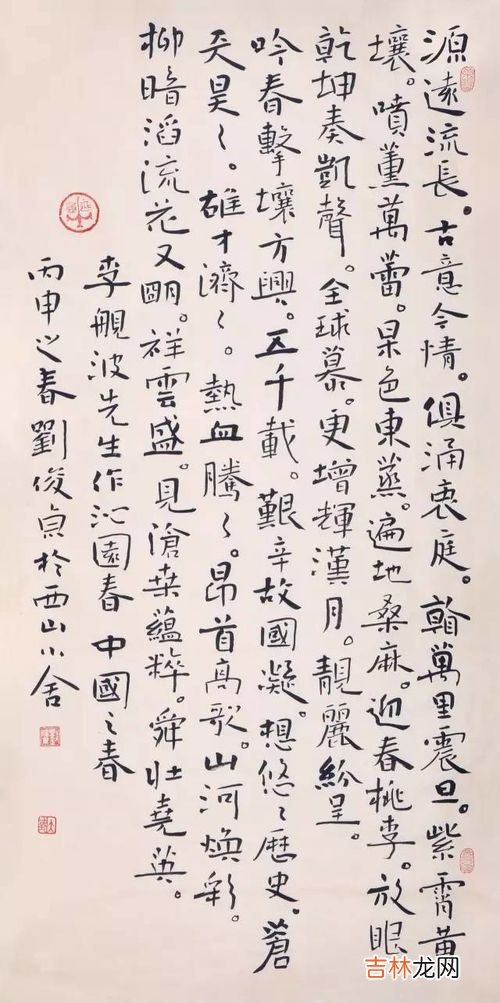 源遠流長。古意今情。俱涌衷庭。翰萬里震旦。紫霄黄
壤。噴薰萬蕾。杲色東蒸。遍地桑麻。迎春桃李。放眼
乾坤奏凱聲。全球慕。更增輝漢月。靚麗紛呈。
吟春擊壤方興。五千載。艱辛故國凝。想悠々歷史。蒼
天昊々。雄才濟々。熱血騰々。昂首高歌。山河煥彩。
柳暗滔流花又朙。祥雲盛。見滄桒蘊粹。舜壮堯英。
李觀波先生作沁園春 中國之春
丙申之春劉俊貞於西山小舍
吉林龙网